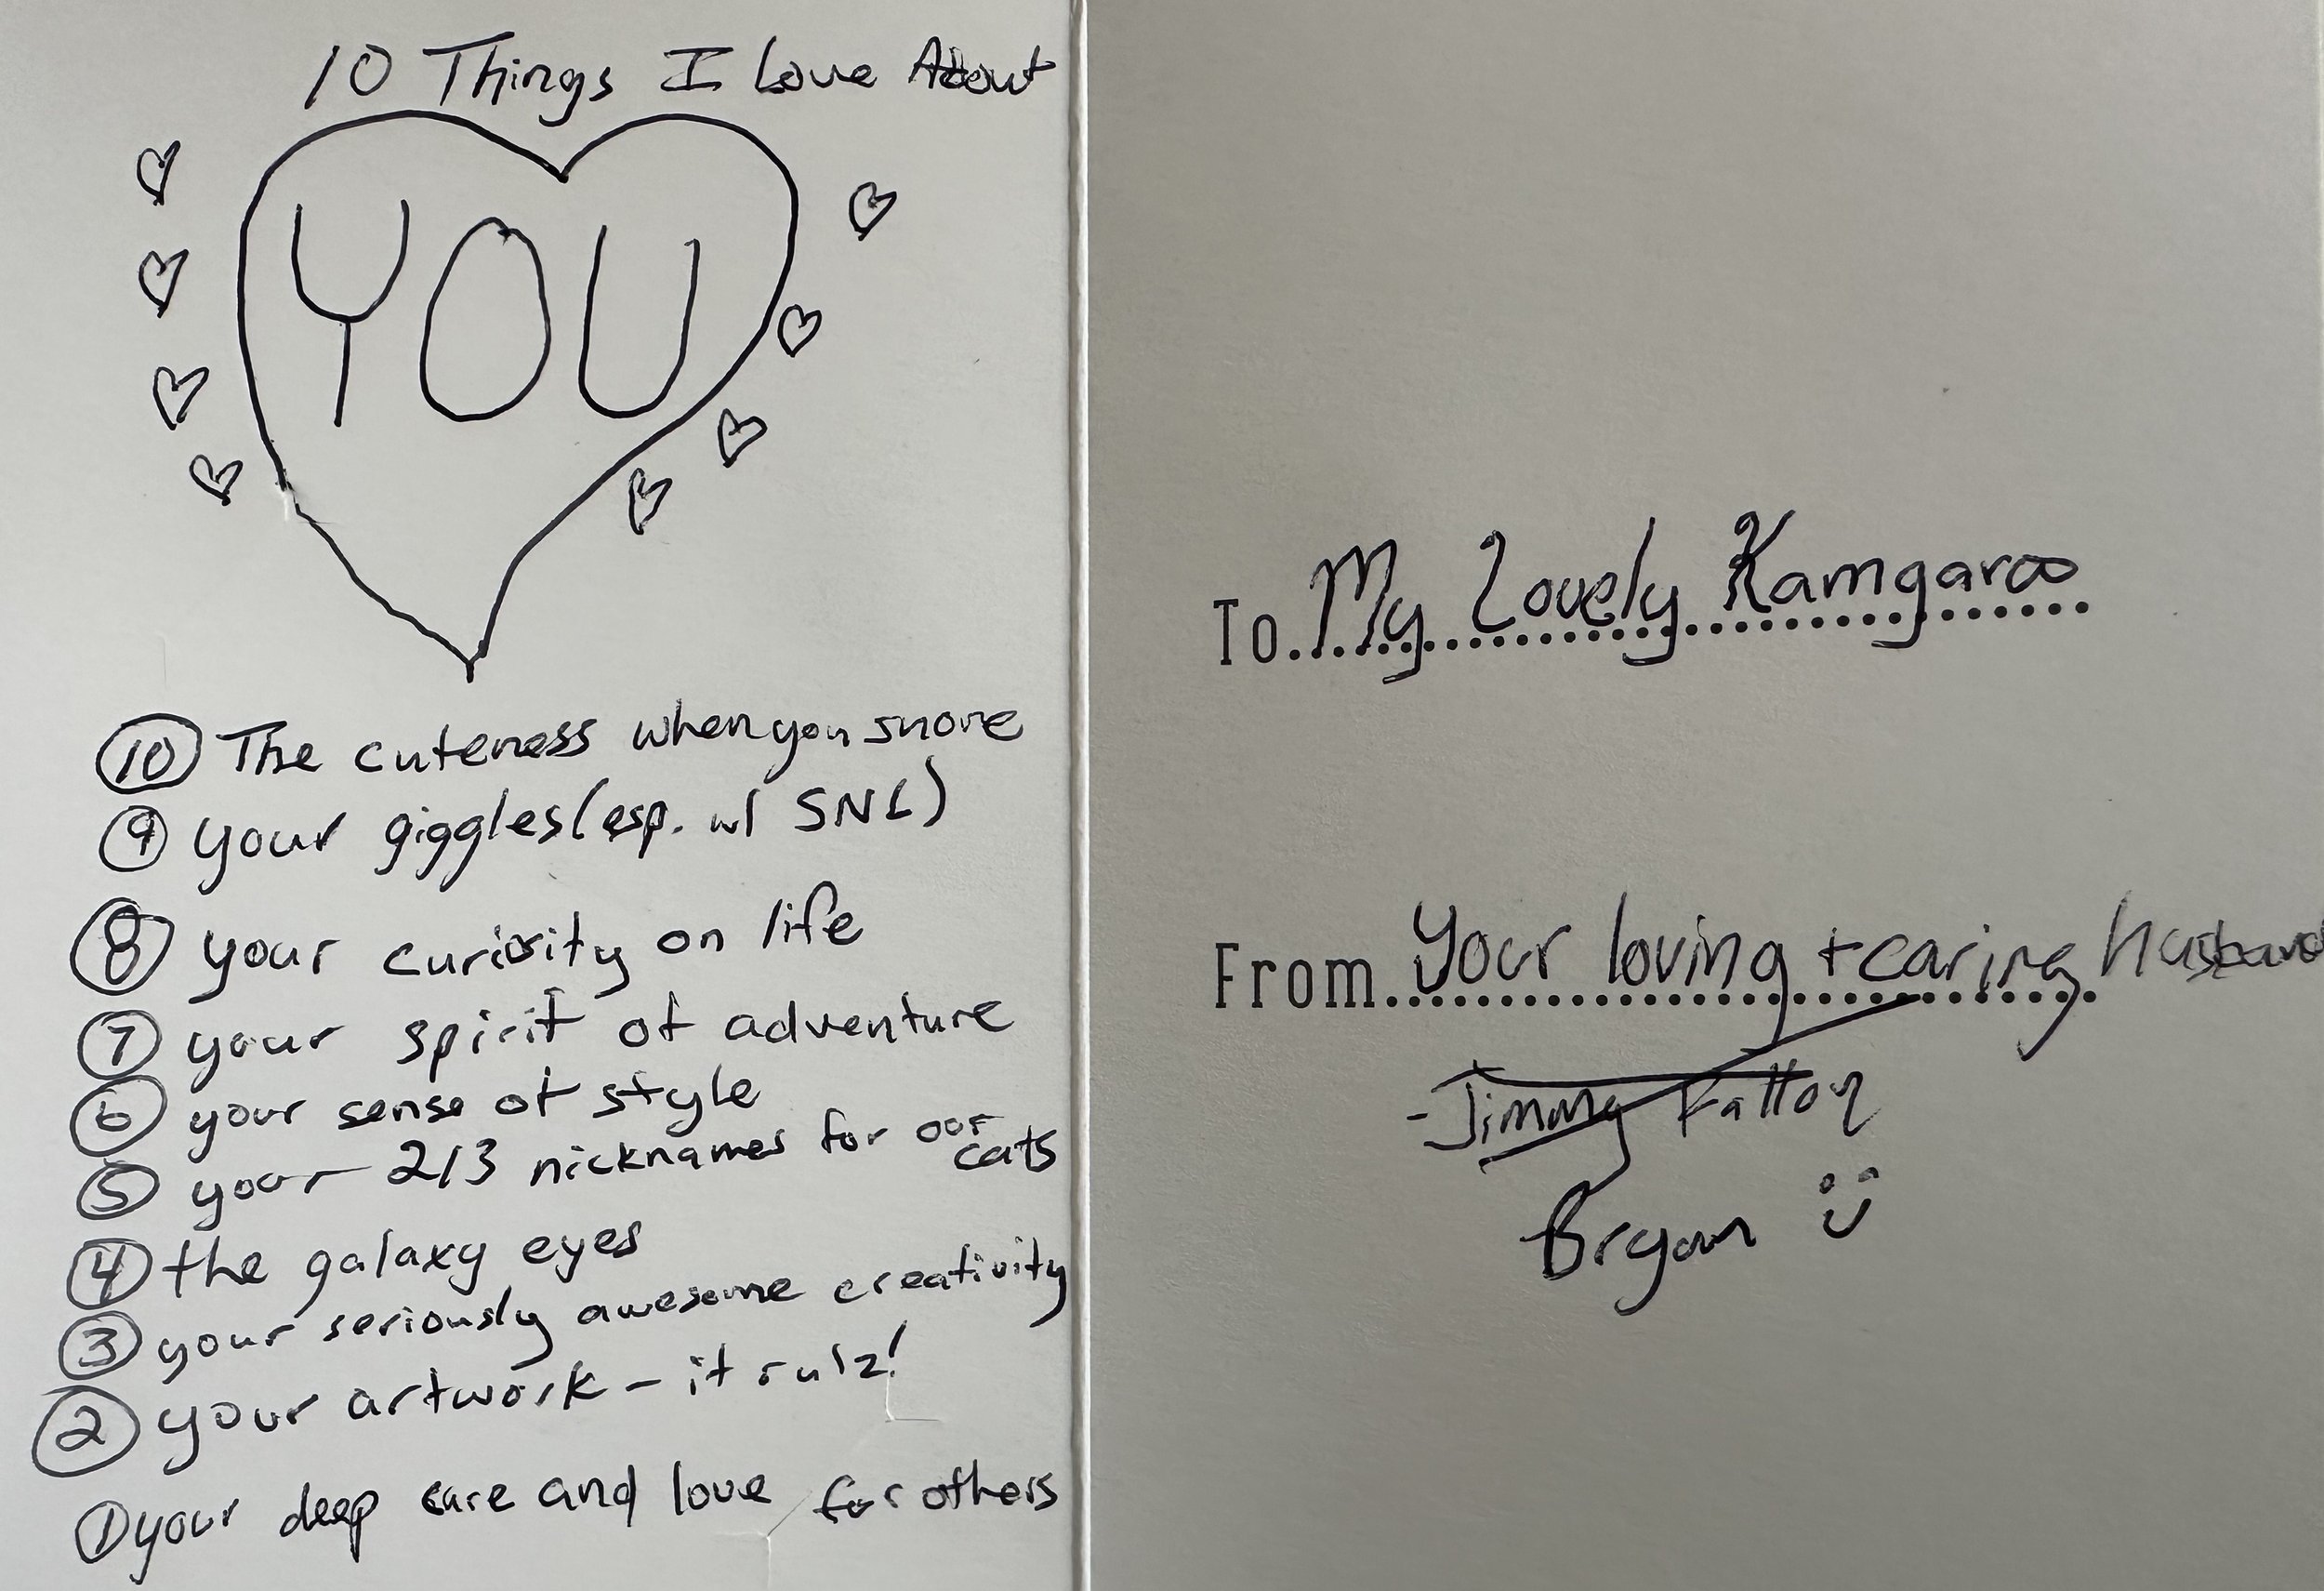 10 Things I Love About
YOU
10 The cuteness when you snore
9 your giggles (esp. w/ SNL)
8 your curiosity on life
7 your spirit of adventure
6 your sense of style
5 your 213 nicknames for our
cats
4 the galaxy eyes
3 your seriously awesome creativity
2 your artwork - it rulz!
1 your deep care and love for others
To My Lovely Kamgaroo
From Your loving + caring husband
-Jimmy Fallon
Bryan :)